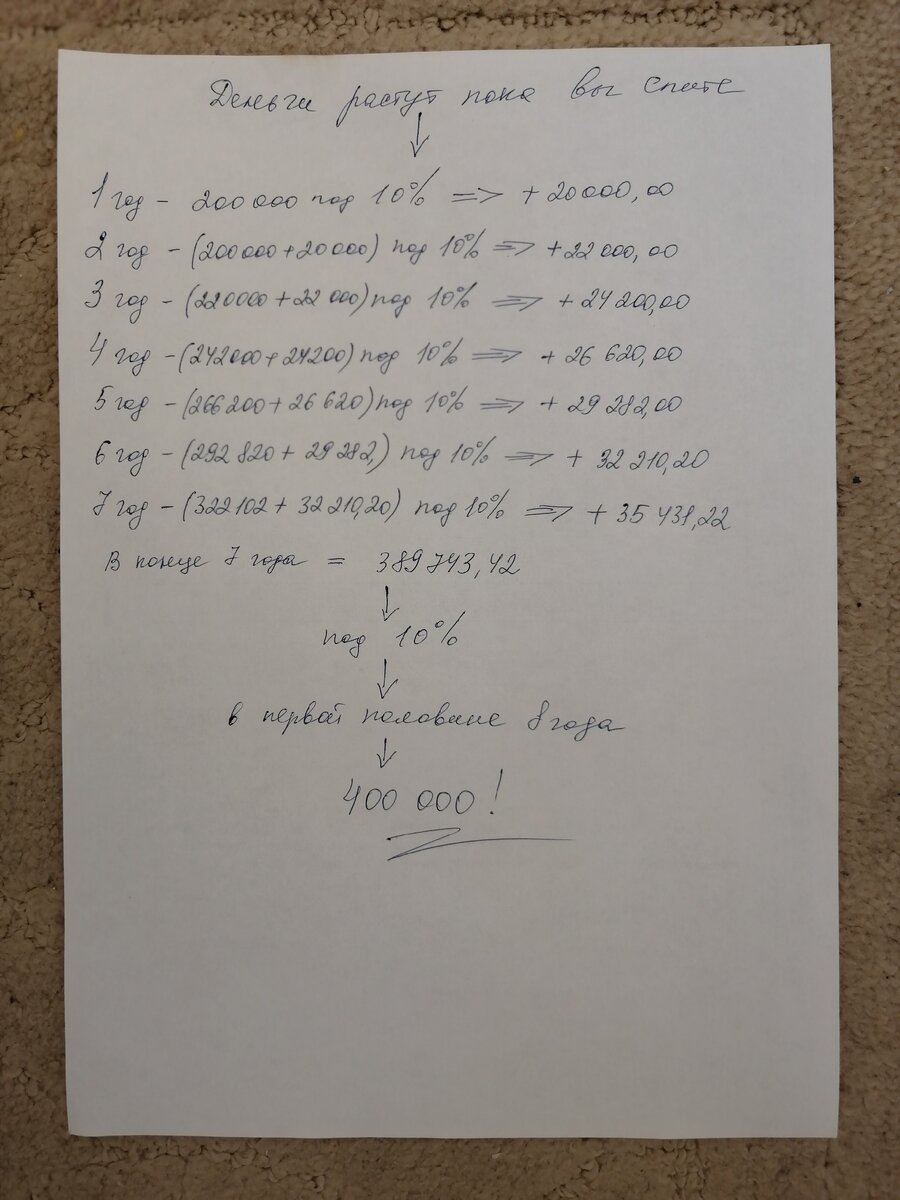 Деньги растут пока вы спите
↓
1 год - 200 000 под 10% => + 20000,00
2 год - (200000 + 20000) под 10% => + 22 000,00
3 год - (220000 + 22 000) под 10% => + 24 200,00
4 год - (242000 + 24200) под 10% => + 26 620,00
5 год - (266 200 + 26 620) под 10% => + 29 282,00
6 год - (292 820 + 29 282,) под 10% => + 32 210,20
7 год - (322102 + 32 210,20) под 10% => + 35 431,22
В конце 7 года = 389743,42
↓
под 10%
↓
в первой половине 8 года
↓
400 000!